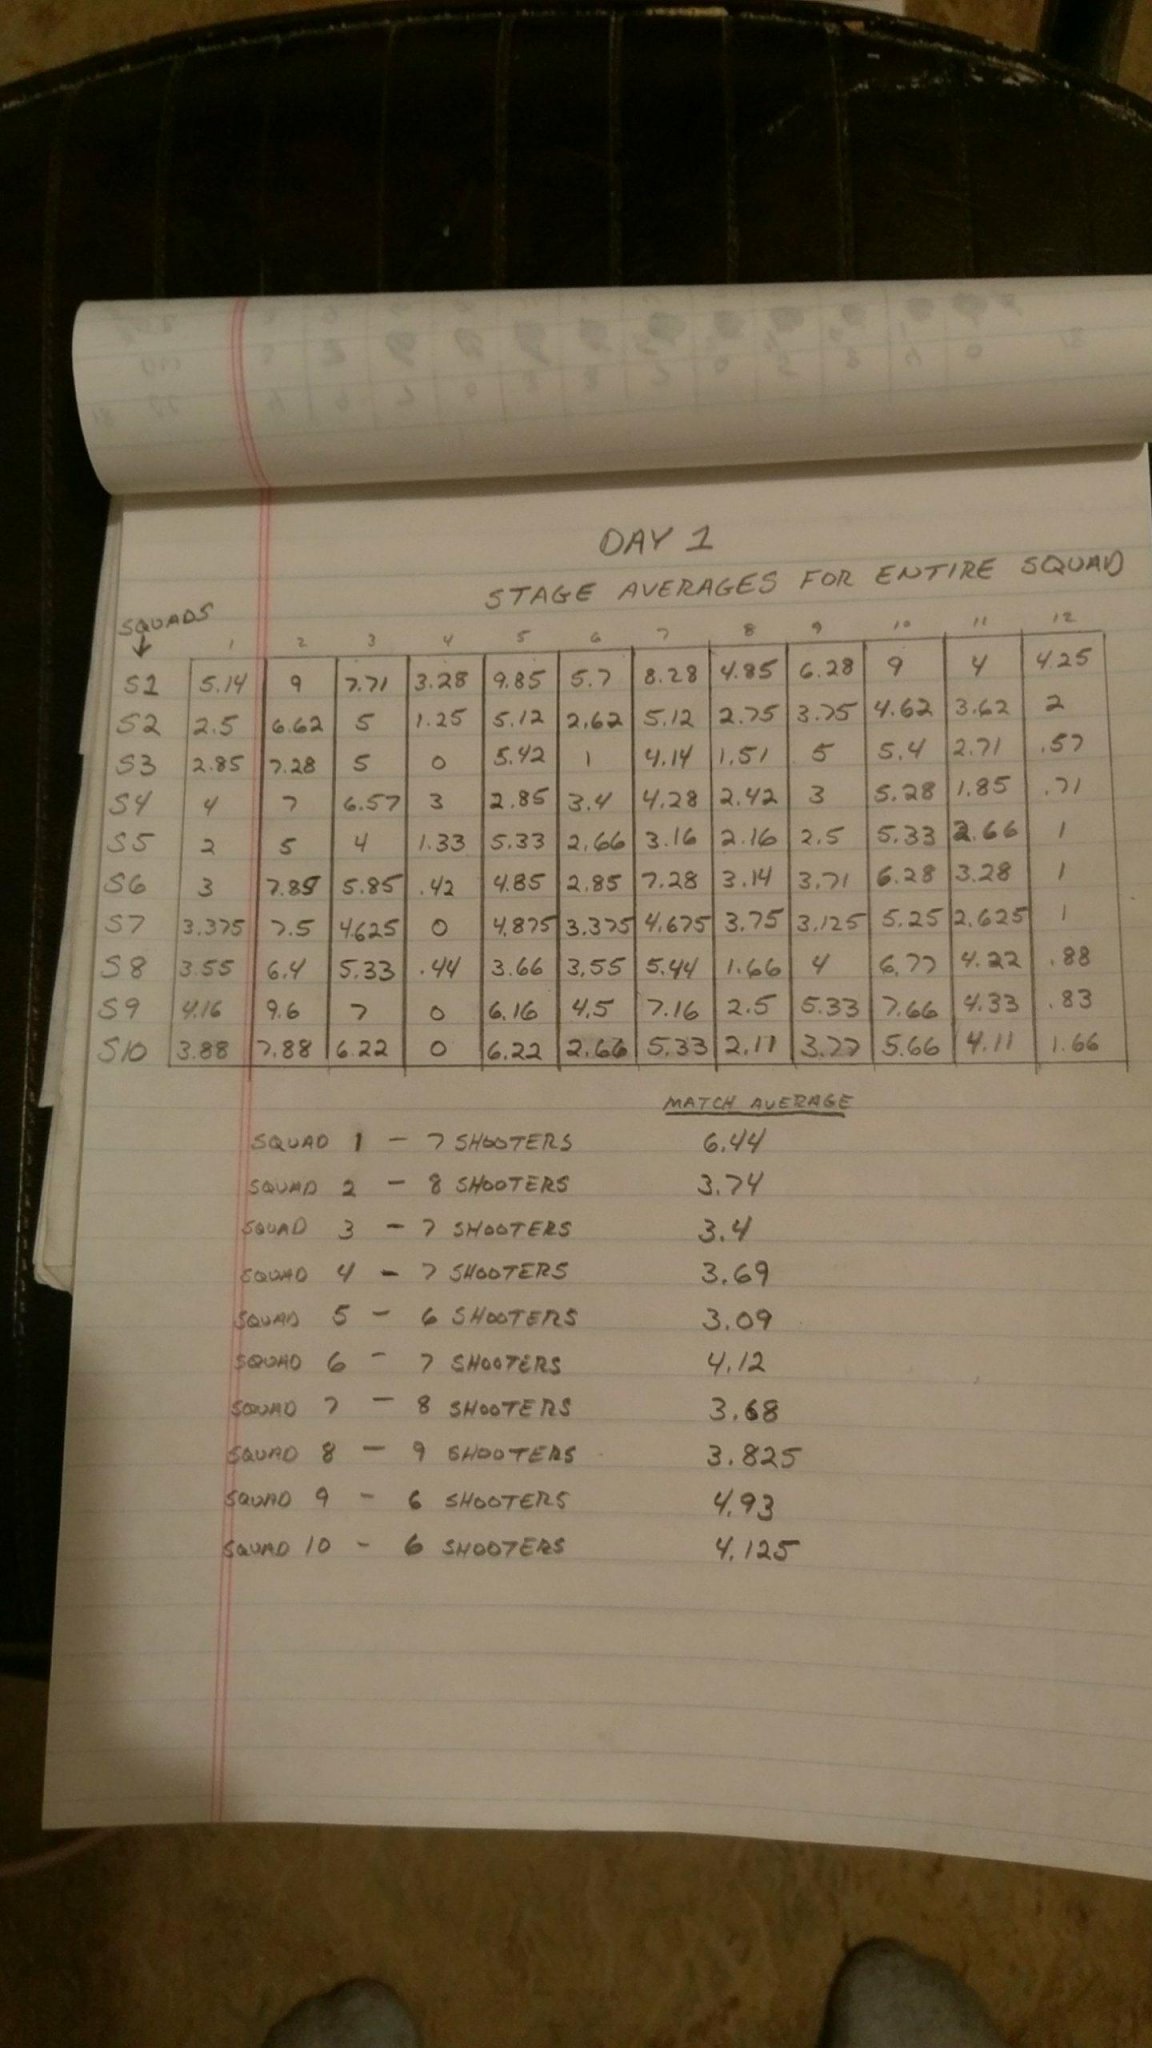 DAY 1
STAGE AVERAGES FOR ENTIRE SQUAD
SQUADS
1 2 3 4 5 6 7 8 9 10 11 12
S1 5.14 9 7.71 3.28 9.85 5.7 8.28 4.85 6.28 9 4 4.25
S2 2.5 6.62 5 1.25 5.12 2.62 5.12 2.75 3.75 4.62 3.62 2
S3 2.85 7.28 5 0 5.42 1 4.14 1.51 5 5.4 2.71 .57
S4 4 7 6.57 3 2.85 3.4 4.28 2.42 3 5.28 1.85 .71
S5 2 5 4 1.33 5.33 2.66 3.16 2.16 2.5 5.33 2.66 1
S6 3 7.85 5.85 .42 4.85 2.85 7.28 3.14 3.71 6.28 3.28 1
S7 3.375 7.5 4.625 0 4.875 3.375 4.675 3.75 3.125 5.25 2.625 1
S8 3.55 6.4 5.33 .44 3.66 3.55 5.44 1.66 4 6.77 4.22 .88
S9 4.16 9.6 7 0 6.16 4.5 7.16 2.5 5.33 7.66 4.33 .83
S10 3.88 7.88 6.22 0 6.22 2.66 5.33 2.11 3.77 5.66 4.11 1.66
MATCH AVERAGE
SQUAD 1 - 7 SHOOTERS 6.44
SQUAD 2 - 8 SHOOTERS 3.74
SQUAD 3 - 7 SHOOTERS 3.4
SQUAD 4 - 7 SHOOTERS 3.69
SQUAD 5 - 6 SHOOTERS 3.09
SQUAD 6 - 7 SHOOTERS 4.12
SQUAD 7 - 8 SHOOTERS 3.68
SQUAD 8 - 9 SHOOTERS 3.825
SQUAD 9 - 6 SHOOTERS 4.93
SQUAD 10 - 6 SHOOTERS 4.125